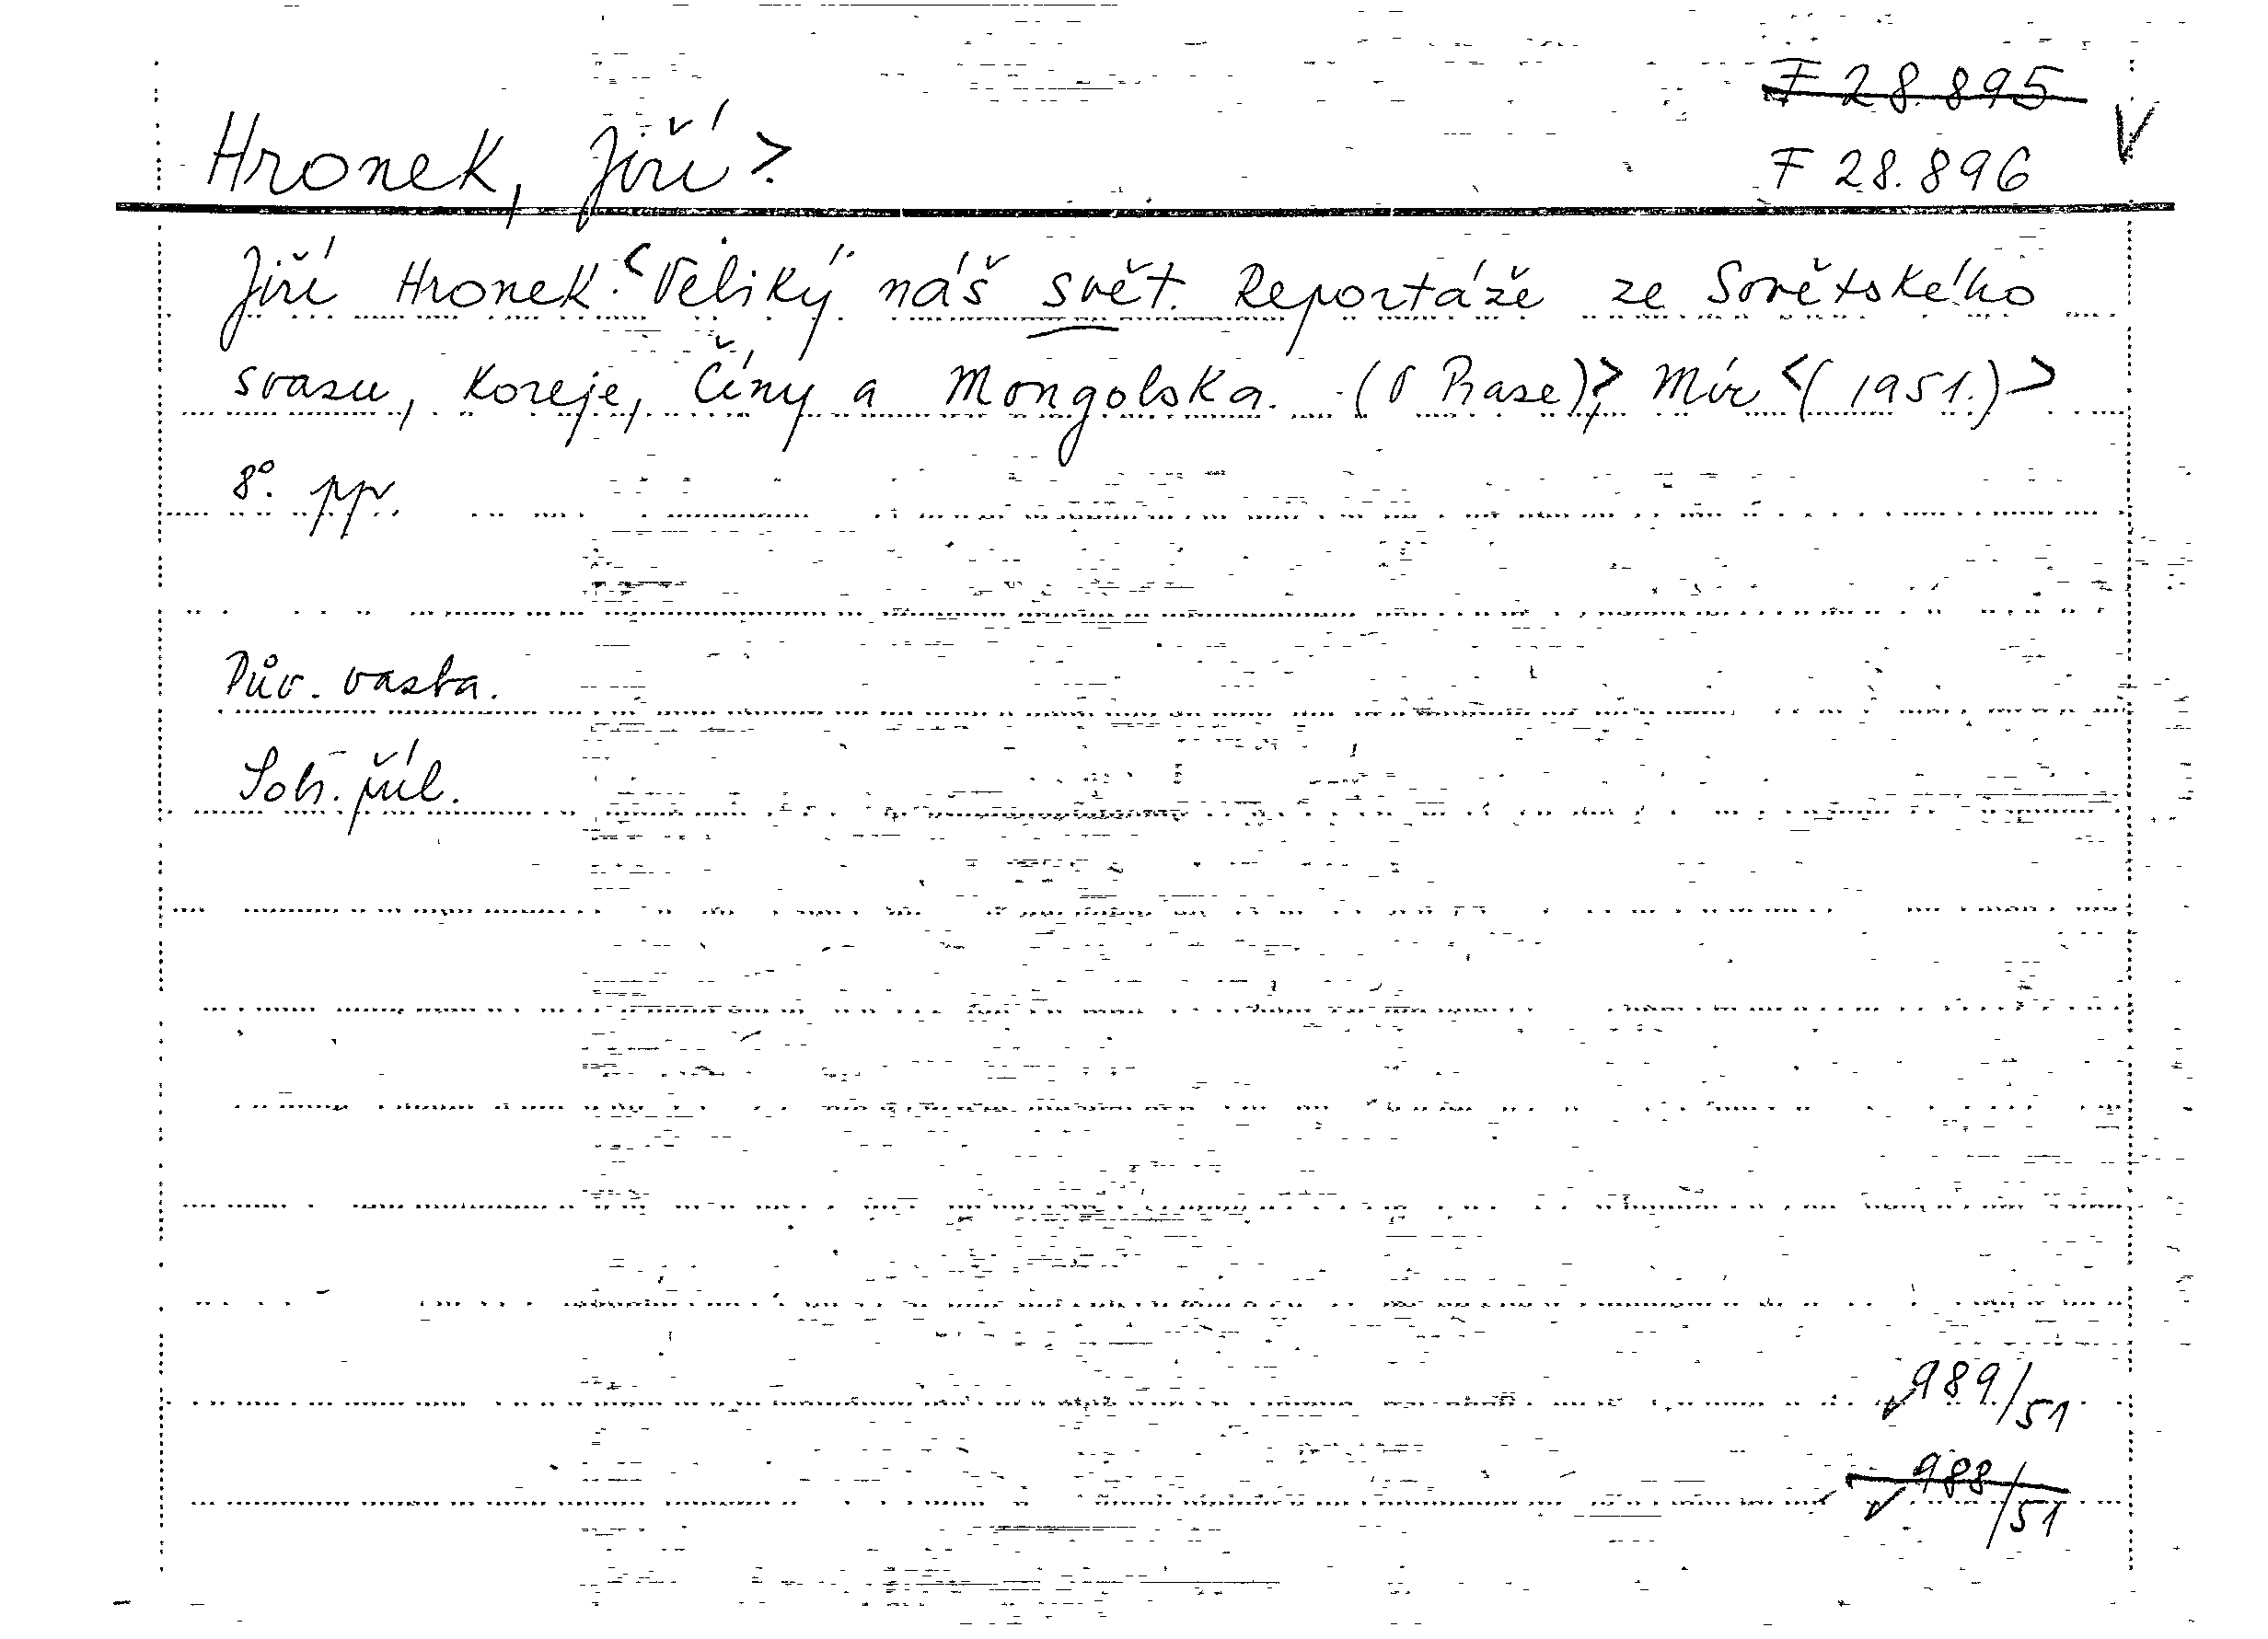 F 28.895
Hronek, Jiří > F 28.896
Jiří Hronek: < Veliký náš svět. Reportáže ze Sovětského
svazu, Koreje, Číny a Mongolska. (V Praze) > Mír < (1951.) >
8°. pp.
Pův. vazba.
Sob. příl.
989/51
988/51